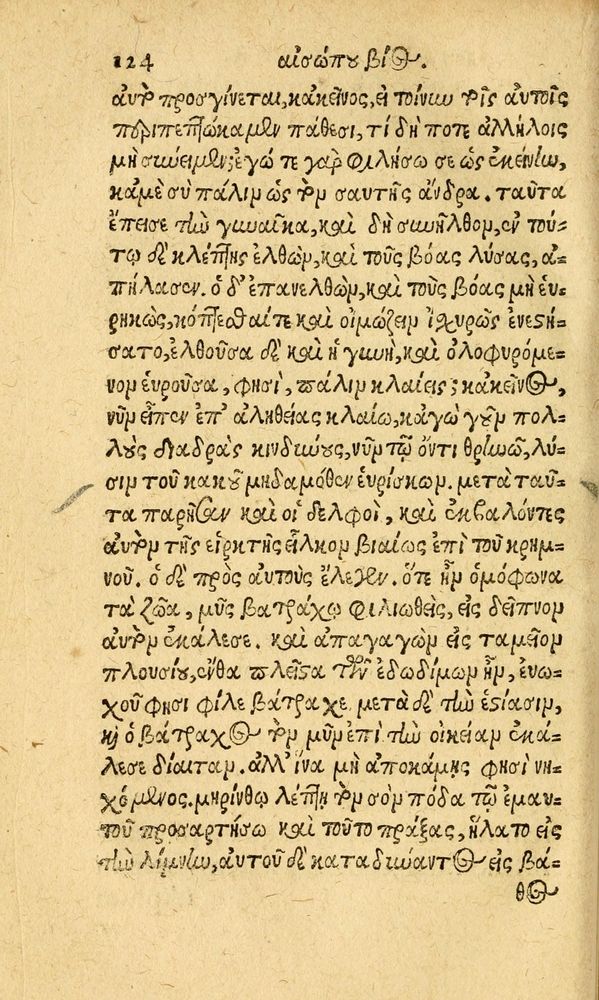 124 αἰσώπου βίος.
αὐτῷ προσγίνεται, κἀκεῖνος, εἰ τοίνυν τοῖς αὐτοῖς
περιπεπτώκαμεν πάθεσι, τί δή ποτε ἀλλήλοις
μὴ σύνειμεν; ἐγώ τε γὰρ φιλήσω σε ὡς ἐκείνην,
κἀμὲ σὺ πάλιν ὡς τὸν σαυτῆς ἄνδρα. ταῦτα
ἔπεισε τὴν γυναῖκα, καὶ δὴ συνῆλθον, ἐν τού-
τῳ δὲ κλέπτης ἐλθὼν, καὶ τοὺς βόας λύσας, ἀ-
πήλασεν. ὁ δ' ἐπανελθὼν, καὶ τοὺς βόας μὴ εὑ-
ρηκὼς, κόπτεσθαί τε καὶ οἰμώζειν ἰσχυρῶς ἐνεστή-
σατο, ἐλθοῦσα δὲ καὶ ἡ γυνὴ, καὶ ὀλοφυρόμε-
νον εὑροῦσα, φησὶ, πάλιν κλαίεις; κἀκεῖνος,
νῦν εἶπεν ἐπ' ἀληθείας κλαίω, κἀγὼ γοῦν πολ-
λοὺς διαδρὰς κινδύνους, νῦν τῷ ὄντι θρηνῶ, λύ-
σιν τοῦ κακοῦ μηδαμόθεν εὑρίσκων. μετὰ ταῦ-
τα παρῆσαν καὶ οἱ δελφοὶ, καὶ ἐκβαλόντες
αὐτὸν τῆς εἱρκτῆς εἷλκον βιαίως ἐπὶ τοῦ κρημ-
νοῦ. ὁ δὲ πρὸς αὐτοὺς ἔλεγεν. ὅτε ἦν ὁμόφωνα
τὰ ζῶα, μῦς βατράχῳ φιλιωθεὶς, εἰς δεῖπνον
αὐτὸν ἐκάλεσε. καὶ ἀπαγαγὼν εἰς ταμεῖον
πλουσίου, ἔνθα πλεῖστα τῶν ἐδωδίμων ἦν, εὐω-
χοῦ φησι φίλε βάτραχε. μετὰ δὲ τὴν ἑστίασιν,
καὶ ὁ βάτραχος τὸν μῦν ἐπὶ τὴν οἰκείαν ἐκά-
λεσε δίαιταν. ἀλλ' ἵνα μὴ ἀποκάμῃς φησὶ νη-
χόμενος. μηρίνθῳ λεπτῇ τὸν σὸν πόδα τῷ ἐμαυ-
τοῦ προσαρτήσω καὶ τοῦτο πράξας, ἥλατο εἰς
τὴν λίμνην, αὐτοῦ δὲ καταδύναντος εἰς βά-
θος